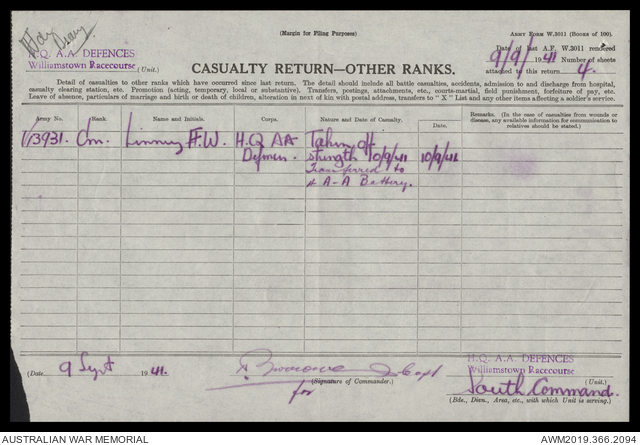 (Margin for Filing Purposes)
ARMY FORM W.3011 (BOOKS OF 100).
H.Q. A.A. DEFENCES
Williamstown Racecourse, (Unit.)
Date of last A.F. W.3011 rendered
9/9/ 1941 Number of sheets
attached to this return 4.
CASUALTY RETURN—OTHER RANKS.
Detail of casualties to other ranks which have occurred since last return. The detail should include all battle casualties, accidents, admission to and discharge from hospital,
casualty clearing station, etc. Promotion (acting, temporary, local or substantive). Transfers, postings, attachments, etc., courts-martial, field punishment, forfeiture of pay, etc.
Leave of absence, particulars of marriage and birth or death of children, alteration in next of kin with postal address, transfers to "X" List and any other items affecting a soldier's service.
Army No. Rank. Name and Initials. Corps. Nature and Date of Casualty. Date. Remarks. (In the case of casualties from wounds or
disease, any available information for communication to
relatives should be stated.)
V13931. Gnr. F.W. H.Q AA Taken off
strength 10/9/41 10/9/41
Transferred to
A-A Battery.
(Date 9 Sept 1941.
Capt
(Signature of Commander.)
for
H.Q. A.A. DEFENCES
Williamstown Racecourse
(Unit.)
South Command.
(Bde., Divn., Area, etc., with which Unit is serving.)
AUSTRALIAN WAR MEMORIAL
AWM2019.366.2094